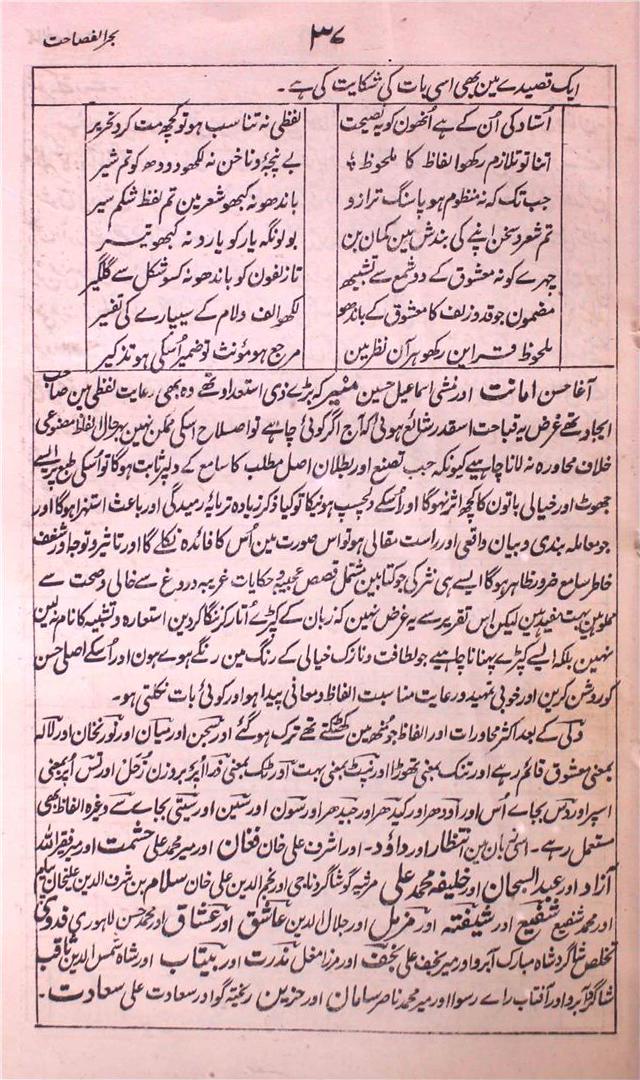 بحر الفصاحت
۳۷
ایک قصیدے مین بھی اسی بات کی شکایت کی ہے۔
اُستاد کی اُن کے ہے اُنھون کو یہ نصیحت لفظی نہ تناسب ہو تو کچھ مت کرو تحریر
اتنا تو تلازم رکھو الفاظ کا ملحوظ بے پنجۂ و ناخن نہ لکھو دودھ کو تم شیر
جب تک کہ نہ منظوم ہو پاسنگ ترازو باندھو نہ کبھو شعر مین تم لفظ شکم سیر
تم شعر و سخن اپنے کی بندش مین کمان بن بولو نگہ یار کو یارو نہ کبھو تیر
چہرے کو نہ معشوق کے دو شمع سے تشبیہ تا زلفون کو باندھو نہ کسو شکل سے گلگیر
مضمون جو قد و زلف کا معشوق کے باندھو لکھو الف و لام کے سیپارے کی تفسیر
ملحوظ قراین رکھو ہر آن نظر مین مرجع ہو مؤنث تو ضمیر اُسکی ہو تذکیر
آغا حسن امانت اور منشی اسماعیل حسین منیر کہ بڑے ذی استعداد تھے وہ بھی رعایت لفظی مین صاحب
ایجاد تھے غرض یہ قباحت اسقدر شائع ہوئی کہ آج اگر کوئی چاہے تو اصلاح اسکی ممکن نہین بہر حال الفاظ مصنوعی
خلاف محاورہ نہ لانا چاہیے کیونکہ جب تصنع اور بطلان اصل مطلب کا سامع کے دلپر ثابت ہوگا تو اُسکی طبع پر ایسے
جھوٹ اور خیالی باتون کا کچھ اثر نہوگا اور اُسکے دلچسپ ہونیکا تو کیا ذکر زیادہ تر بایۂ رمیدگی اور باعث استہزا ہوگا اور
جو معاملہ بندی و بیان واقعی اور راست مقالی ہو تو اس صورت مین اُس کا فائدہ نکلے گا اور تاثیر و توجہ اور شغف
خاطر سامع ضرور ظاہر ہوگا ایسے ہی نثر کی جو کتابین مشتمل قصص عجیبہ و حکایات غریبہ دروغ سے خالی و صحت سے
مملو ہین بہت مفید ہین لیکن اس تقریر سے یہ غرض نہین کہ زبان کے کپڑے اُتار کر ننگا کر دین استعارہ و تشبیہ کا نام نہ لین
نہین بلکہ ایسے کپڑے پہنانا چاہیے جو لطافت و نازک خیالی کے رنگ مین رنگے ہوے ہون اور اُسکے اصلی حسن
کو روشن کرین اور خوبی تمہید و رعایت مناسبت الفاظ و معانی پیدا ہو اور کوئی بات نکلتی ہو۔
ولی کے بعد اکثر محاورات اور الفاظ جو مُنھ مین کھٹکتے تھے ترک ہو گئے اور سجن اور میان اور نورنخان اور لالہ
بمعنی معشوق قائم رہے اور تنک بمعنی تھوڑا اور نپٹ بمعنی بہت اور ٹک بمعنی ذرا اُپر بر وزن زحل اور تس اُپر بمعنی
اسپر اور دس بجاے اُس اور اُودھر اور کیدھر اور جیدھر اور سون اور سَین اور سیتی بجاے سے وغیرہ الفاظ بھی
مستعمل رہے۔ اسی زمان مین انتظار اور داؤد۔ اور اشرف علی خان فغان اور میر محمد علی حشمت اور میر فقر اللہ
آزاد اور عبد السبحان اور خلیفہ محمد علی مرثیہ گو شاگرد ناجی اور نجم الدین علی خان سلام بن شرف الدین علیخان پیام
اور محمد شفیع شفیع اور شیفتہ اور مزمل اور جلال الدین عاشق اور عشاق اور محمد حسن لاہوری فدوی
تخلص شاگرد شاہ مبارک آبرو اور میر نجف علی نجف اور مرزا مغل ندرت اور بیتاب اور شاہ شمس الدین ثاقب
شاگرد آبرو اور آفتاب راے رسوا اور میر محمد ناصر سامان اور حزین ریختہ گو اور سعادت علی سعادت۔